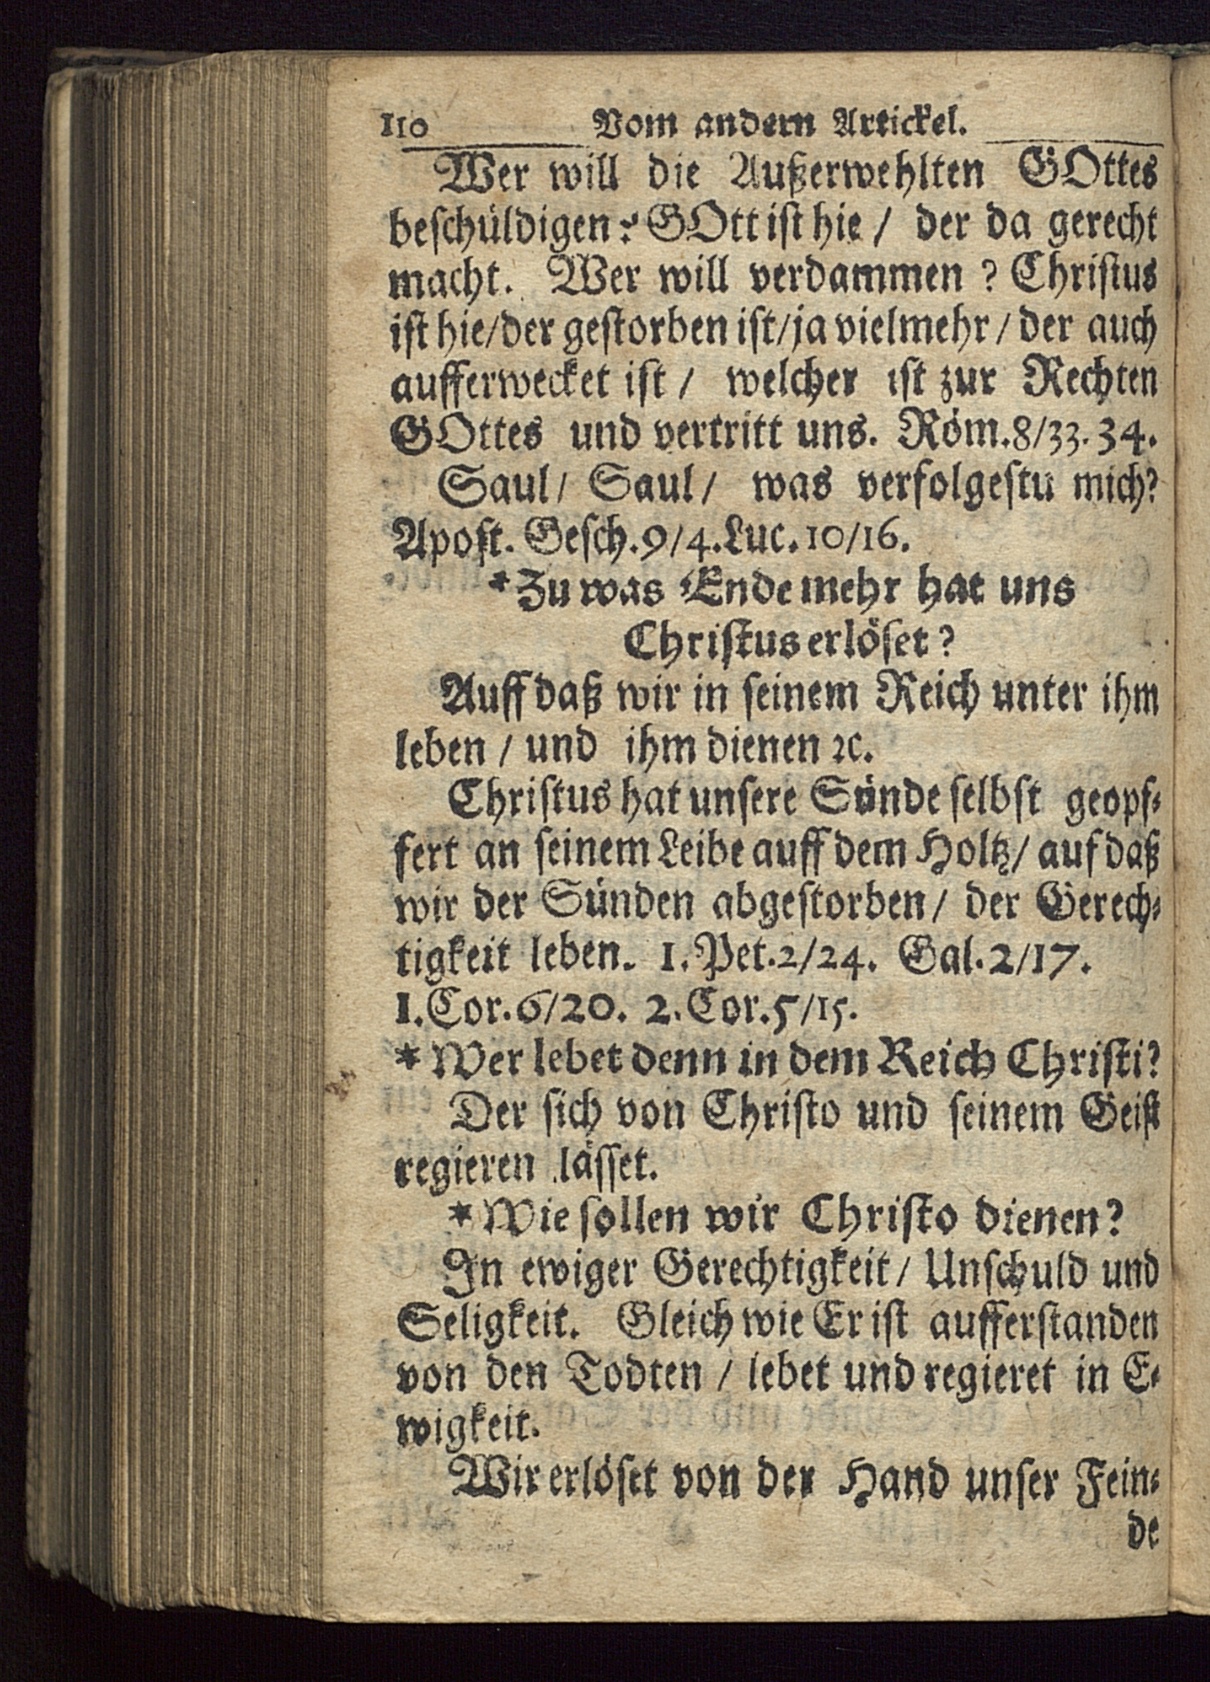 110 Vom andern Artickel.
Wer will die Außerwehlten GOttes
beschüldigen? GOtt ist hie / der da gerecht
macht. Wer will verdammen ? Christus
ist hie/der gestorben ist/ja vielmehr / der auch
aufferwecket ist / welcher ist zur Rechten
GOttes und vertritt uns. Röm.8/33.34.
Saul/ Saul/ was verfolgestu mich?
Apost. Gesch.9/4.Luc.10/16.
*Zu was Ende mehr hat uns
Christus erlöset?
Auff daß wir in seinem Reich unter ihm
leben / und ihm dienen ꝛc.
Christus hat unsere Sünde selbst geopf⸗
fert an seinem Leibe auff dem Holtz/ auf daß
wir der Sünden abgestorben/ der Gerech⸗
tigkeit leben. 1.Pet.2/24. Gal.2/17.
1.Cor.6/20. 2.Cor.5/15.
* Wer lebet denn in dem Reich Christi?
Der sich von Christo und seinem Geist
regieren lässet.
* Wie sollen wir Christo dienen?
In ewiger Gerechtigkeit/ Unschuld und
Seligkeit. Gleich wie Er ist aufferstanden
von den Todten / lebet und regieret in E⸗
wigkeit.
Wir erlöset von der Hand unser Fein⸗
de